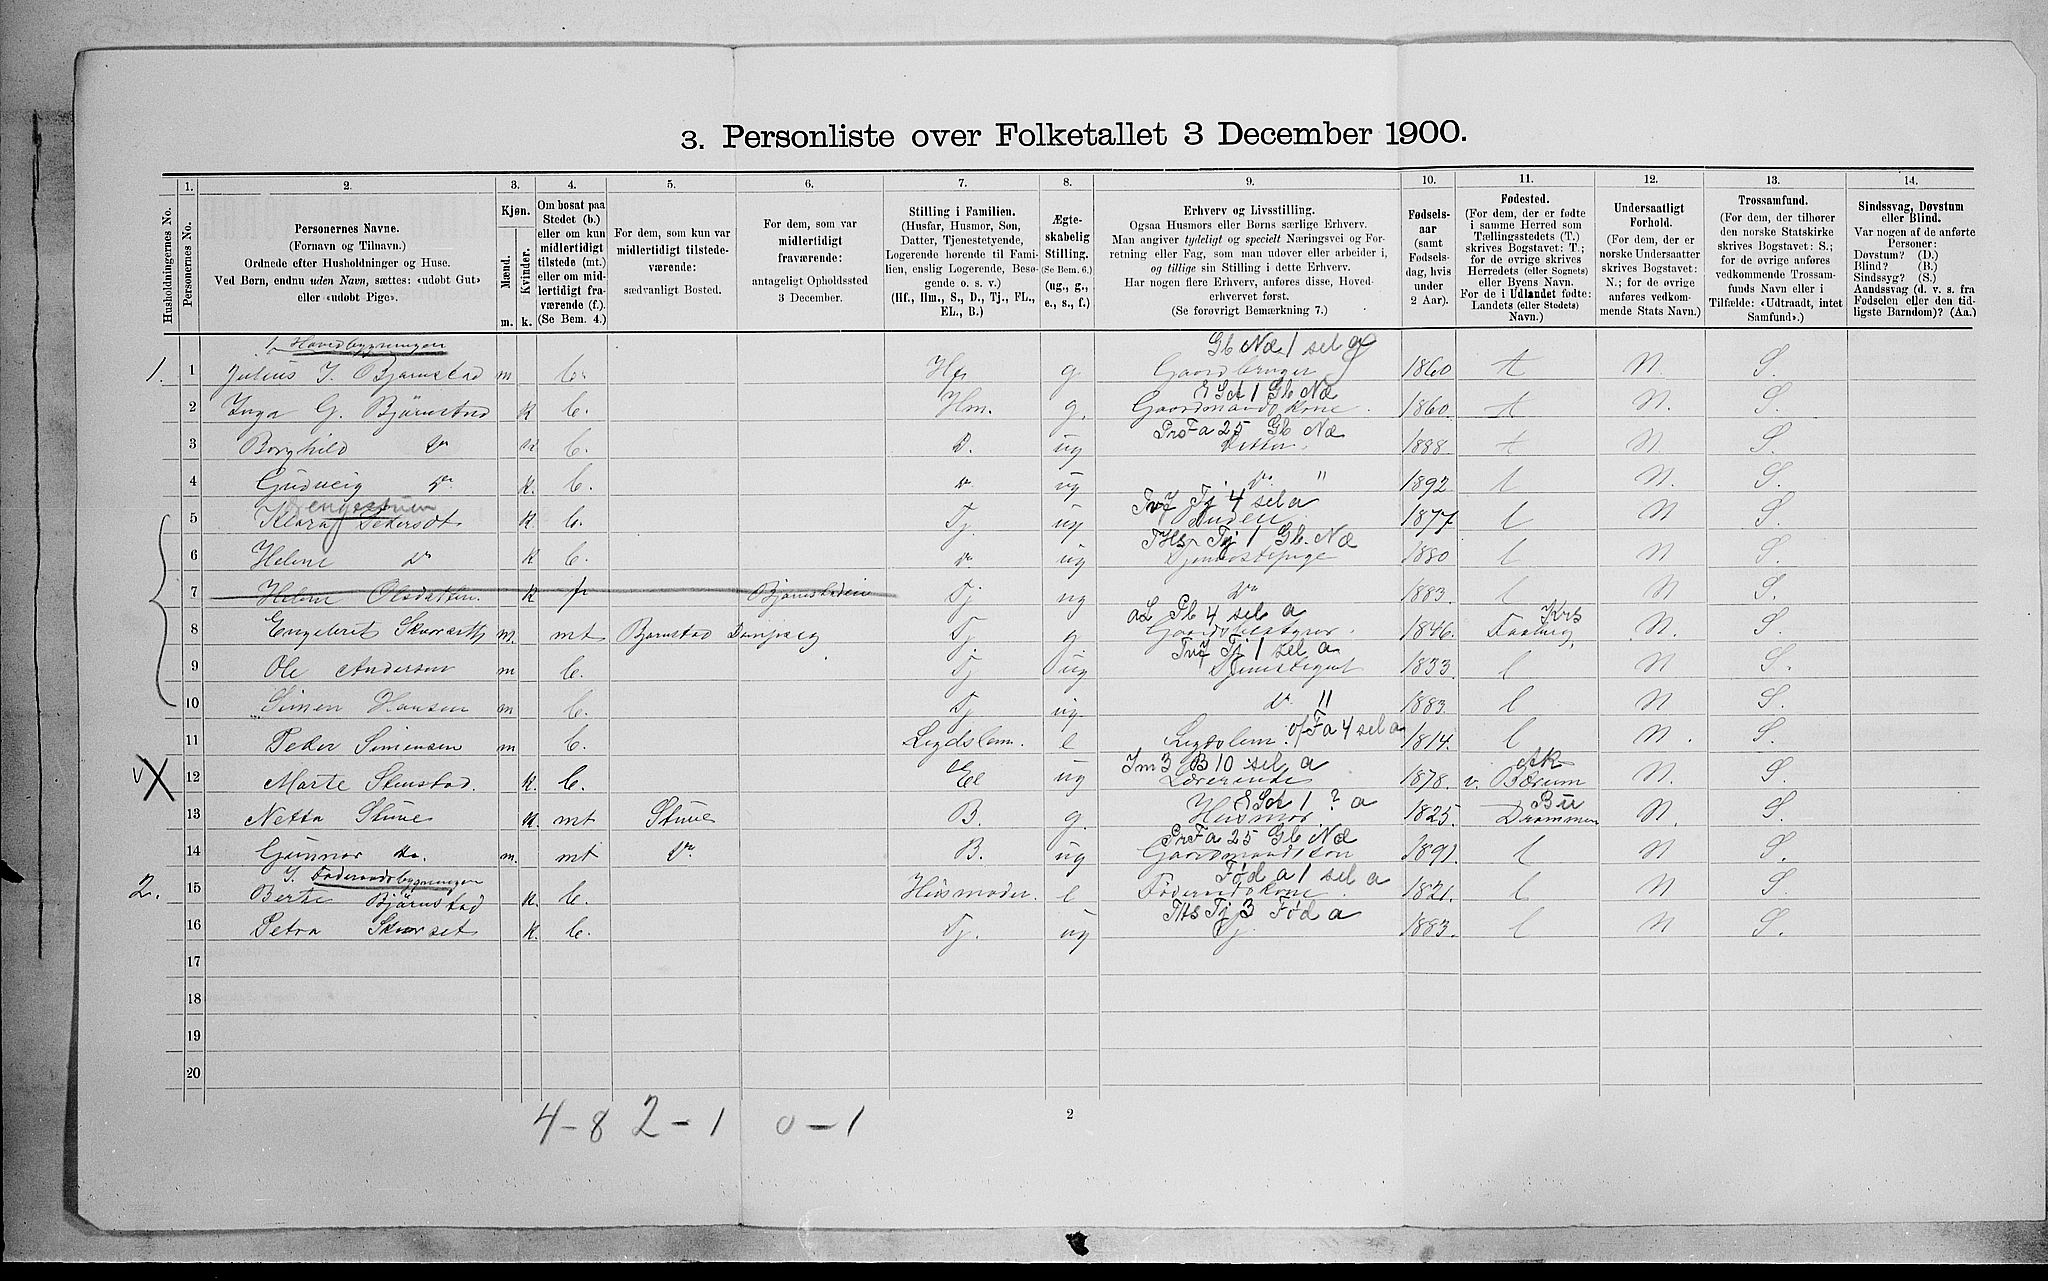 3. Personliste over Folketallet 3 December 1900.
Husholdningernes No.
1.
Personernes No.
2.
Personernes Navne.
(Fornavn og Tilnavn.)
Ordnede efter Husholdninger og Huse.
Ved Børn, endnu uden Navn, sættes: «udøbt Gut»
eller «udøbt Pige».
3.
Kjøn.
Mænd.
Kvinder.
m. k.
4.
Om bosat paa
Stedet (b.)
eller om kun
midlertidigt
tilstede (mt.)
eller om mid-
lertidigt fra-
værende (f.)
(Se Bem. 4.)
5.
For dem, som kun var
midlertidigt tilstede-
værende:
sædvanligt Bosted.
6.
For dem, som var
midlertidigt
fraværende:
antageligt Opholdssted
3 December.
7.
Stilling i Familien.
(Husfar, Husmor, Søn,
Datter, Tjenestetyende,
Logerende hørende til Fami-
lien, enslig Logerende, Besø-
gende o. s. v.)
(Hf., Hm., S., D., Tj., FL.,
EL., B.)
8.
Ægte-
skabelig
Stilling.
(Se Bem. 6.)
(ug., g.,
e., s., f.)
9.
Erhverv og Livsstilling.
Ogsaa Husmors eller Børns særlige Erhverv.
Man angiver tydeligt og specielt Næringsvei og For-
retning eller Fag, som man udøver eller arbeider i,
og tillige sin Stilling i dette Erhverv.
Har nogen flere Erhverv, anføres disse, Hoved-
erhvervet først.
(Se forøvrigt Bemærkning 7.)
10.
Fødsels-
aar
(samt
Fødsels-
dag, hvis
under
2 Aar).
11.
Fødested.
(For dem, der er fødte
i samme Herred som
Tællingsstedets (T.)
skrives Bogstavet: T.;
for de øvrige skrives
Herredets (eller Sognets)
eller Byens Navn.
For de i Udlandet fødte:
Landets (eller Stedets)
Navn.)
12.
Undersaatligt
Forhold.
(For dem, der er
norske Undersaatter
skrives Bogstavet:
N.; for de øvrige
anføres vedkom-
mende Stats Navn.)
13.
Trossamfund.
(For dem, der tilhører
den norske Statskirke
skrives Bogstavet: S.;
for de øvrige anføres
vedkommende Trossam-
funds Navn eller i
Tilfælde: «Udtraadt, intet
Samfund».)
14.
Sindssvag, Døvstum
eller Blind.
Var nogen af de anførte
Personer:
Døvstum? (D.)
Blind? (B.)
Sindssyg? (S.)
Aandssvag (d. v. s. fra
Fødselen eller den tid-
ligste Barndom)? (Aa.)
1, Hovedbygningen Gb Næ 1 sel a
1. 1 Julius J. Bjørnstad m b. Hf g Gaardbruger 1860 t N. S.
E Sct 1 Gb Næ
2 Inga G. Bjørnstad k b. Hm. g. Gaardmandskone. 1860. t N. S.
Pro Fa 25 Gb Næ
3 Borghild do k b. D. ug Datter. 1888. t N S.
4 Gudveig do k. b. do ug do " 1892 t N. S.
Tvf Tj 4 sel a
5 Klara Pedersdt k b. Tj. ug 1877 t N S.
THs Tj 1 Gb. Næ
6 Helene do k b. do ug Tjenestepige 1880 t N S.
7 Helene Olsdatter. k f Tj ug do 1883. t N S.
aL Gb 4 sel a Krs
8 Engebret m. mt Bjørnstad Tj. g 1846. Faaberg, N. S.
Tvf Tj 1 sel a
9 Ole Andersen m b. Tj ug Tjenestegut 1833 t N S.
10 Simen Hansen m b. Tj ug do " 1883. t N S.
of Fa 4 sel a
11 Peder Simensen m b. Legdslem. e Legdslem. 1814. t N. S.
Im 3 B 10 sel a Ak
12 Marte Stenstad. k. b. El ug Lærerinde 1878. v. Bærum N. S.
E Sct 1 ? a Bu
13 Netta Stuve k. mt Stuve B. g. Husmor. 1825. Drammen N. S.
Pro Fa 25 Gb Næ
14 Gunnar do. m. mt do B. ug Gaardmandssøn 1891. t N S.
2. Føderaadsbygningen Fød a 1 sel a
2. 15 Berte Bjørnstad k. b. Husmoder. e Føderaadskone 1821. t N S.
THs Tj 3 Fød a
16 Petra Skurset k. b. Tj. ug Tj. 1883. t N S.
17
18
19
20
4-8 2-1 0-1
2